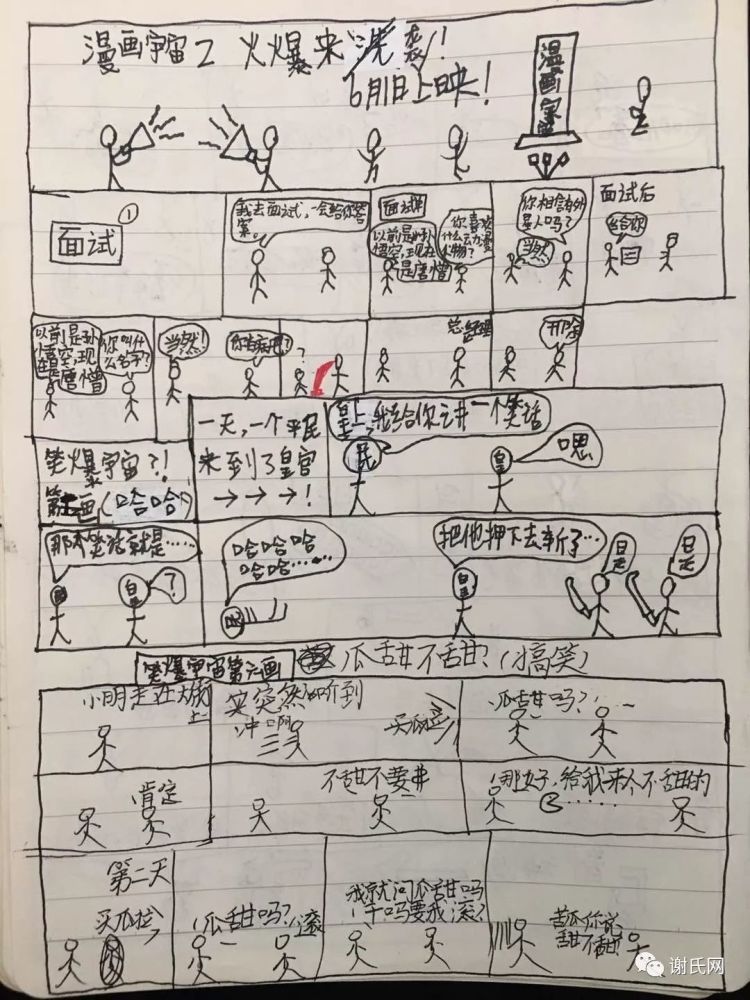 漫画宇宙2 火爆来袭!
6月1日上映!
漫画宇宙
①
面试
我去面试,一会给你答
案。
面试中
以前是孙
悟空,现在
是唐僧
你喜欢
什么动漫
人物?
你相信有外
星人吗?
当然
面试后
给你
以前是孙
悟空,现
在是唐僧
你叫什
么名字?
当然!
你有病吧?
?
总经理
开除
笑爆宇宙?!
第一画(哈哈)
一天,一个平民
来到了皇宫
→→→!
皇上,我给你讲一个笑话
民
皇
嗯
那个笑话就是……
民
皇
?
哈哈哈
哈哈……
把他押下去斩了…
皇
是
是
笑爆宇宙第二画
瓜甜不甜?(搞笑)
小明走在大街
上
突然听到
冲啊
买瓜
瓜甜吗?
肯定
不甜不要钱
那好,给我来个不甜的
……
第二天
买瓜
瓜甜吗?
滚
我就问瓜甜吗
干吗要我滚?
苦瓜你说
甜不甜
谢氏网